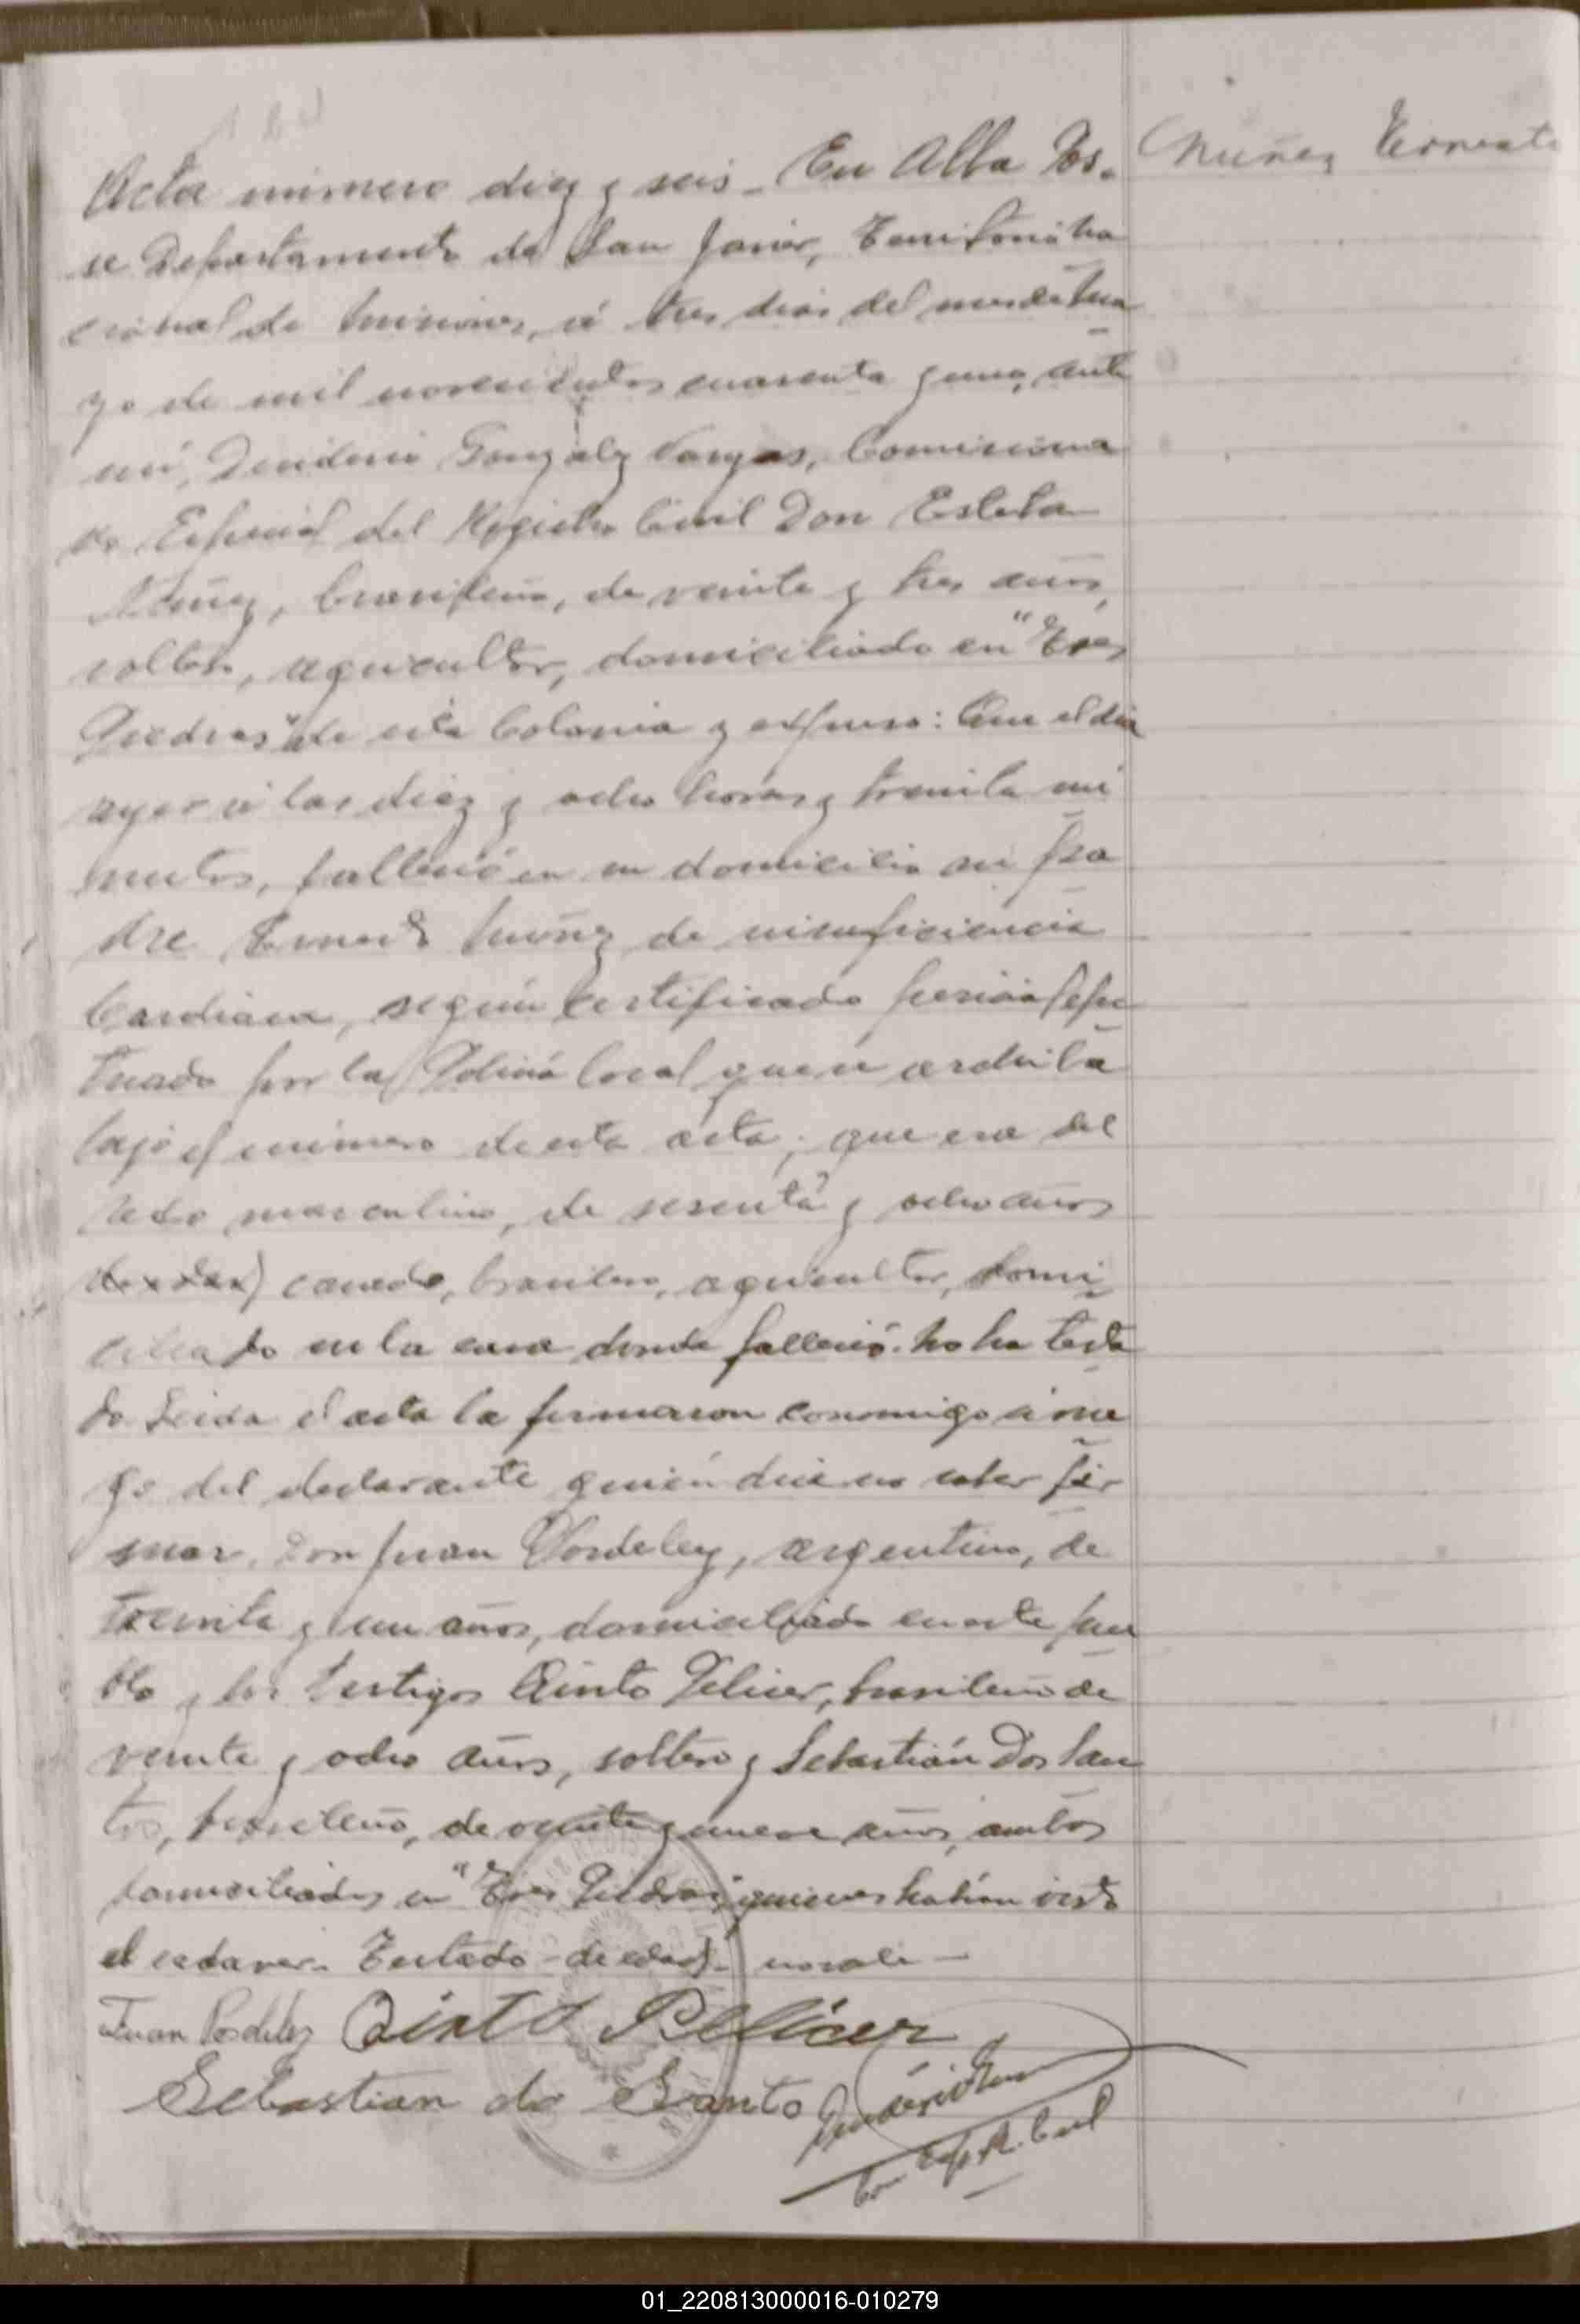 Nuñez Ernesto
Acta número diez y seis - En Alba Po-
se Departamento de San Javier, Territorio Na
cional de Misiones, á tres dias del mes de Ma
yo de mil novecientos cuarenta y uno, ante
mí, Desiderio Gonzalez Vargas, Comisiona
do Especial del Registro Civil Don Esteba
Núñez, brasileño, de veinte y tres años,
soltero, agricultor, domiciliado en "Tres
Piedras" de esta Colonia y expuso: Que el dia
ayer á las diez y ocho horas y treinta mi
nutos, falleció en su domicilio su pa
dre Ernesto Nuñez de insuficiencia
Cardiaca, según certificado pericial efec
tuado por la Policía local que se archiva
bajo el número de esta acta; que era del
sexo masculino, de sesenta y ocho años
de edad) casado, brasilero, agricultor, domi
ciliado en la casa donde falleció. No ha testa
do. Leida el acta la firmaron conmigo á rue
go del declarante quién dice no saber fir
mar, Don Juan Posdeley, argentino, de
treinta y un años, domiciliado en este pue
blo y los testigos Quinto Pelicer, brasileño de
veinte y ocho años, soltero y Sebastián Dos San
tos, brasileño, de veinte y nueve años, ambos
domiciliados en "Tres Piedras", quienes habían visto
el cadaver. Testado - de edad) - no vale -
Juan Posdeley Qinto Pelicer
Sebastian do Santo
Com Esp. R. Civil
01_220813000016-010279